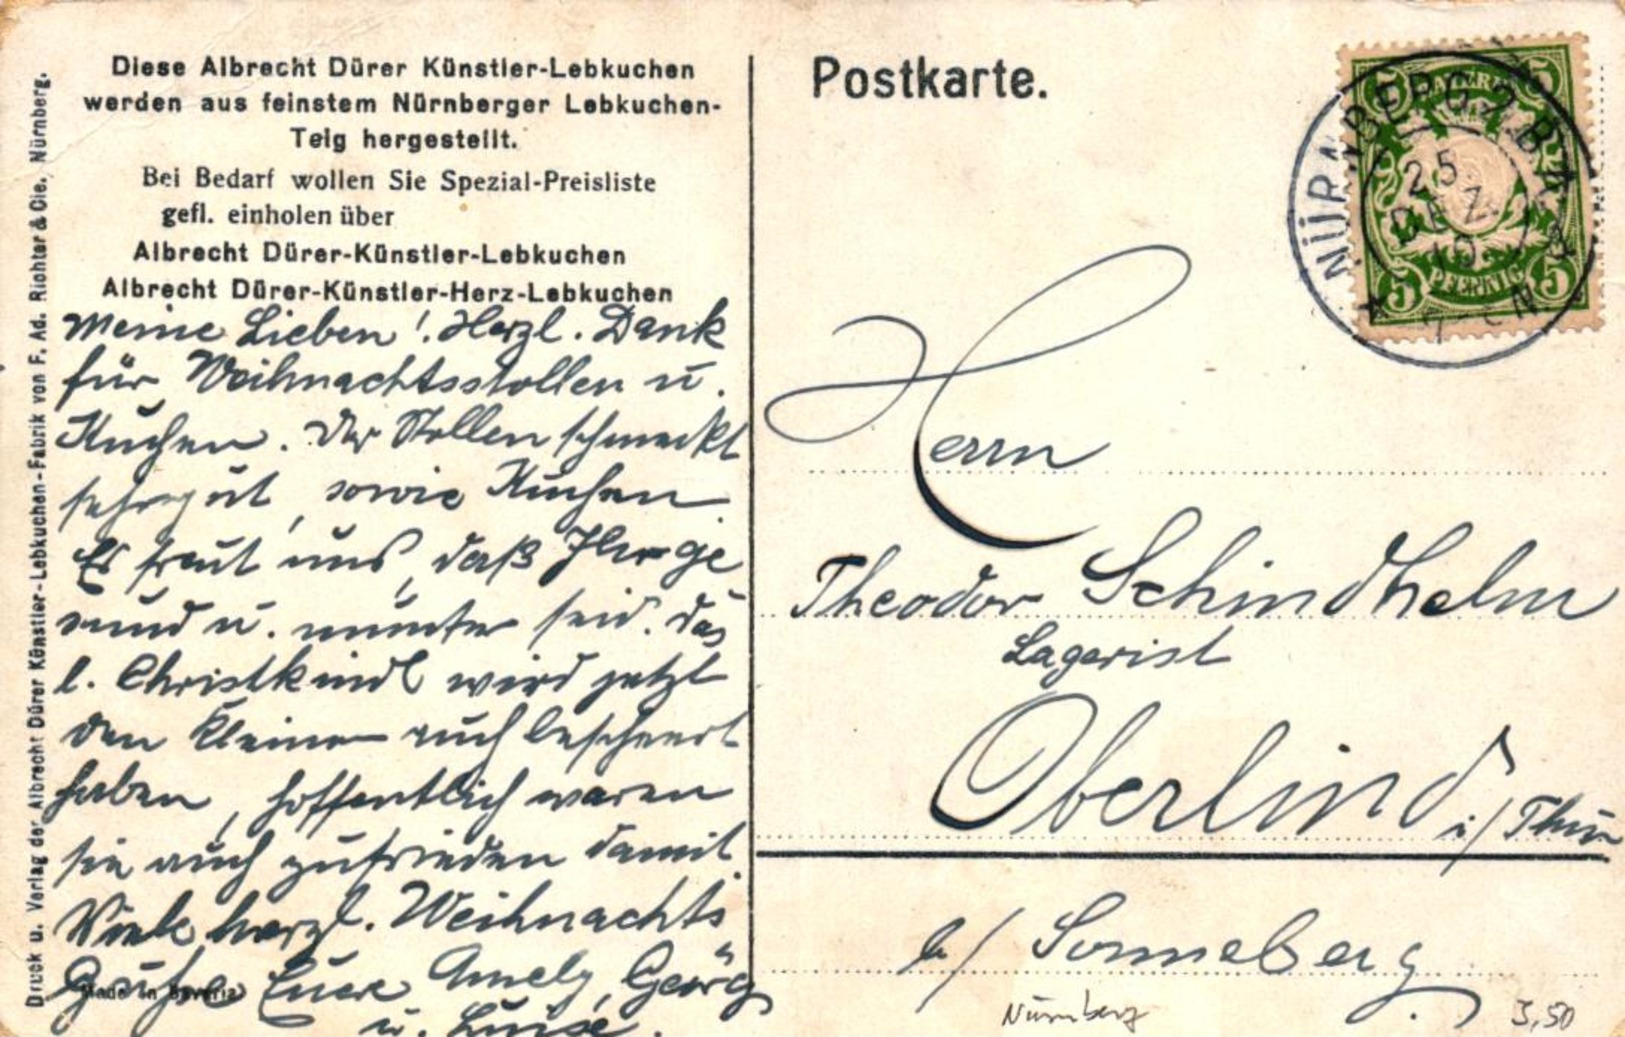 Diese Albrecht Dürer Künstler-Lebkuchen
werden aus feinstem Nürnberger Lebkuchen-
Teig hergestellt.
Bei Bedarf wollen Sie Spezial-Preisliste
gefl. einholen über
Albrecht Dürer-Künstler-Lebkuchen
Albrecht Dürer-Künstler-Herz-Lebkuchen
Meine Lieben! Herzl. Dank
für Weihnachtsstollen u.
Kuchen. Der Stollen schmeckt
sehr gut, sowie Kuchen.
Es freut uns, daß Ihr ge
sund u. munter seid. Das
l. Christkindl wird jetzt
den Kleinen auch bescheert
haben, hoffentlich waren
sie auch zufrieden damit.
Viele herzl. Weihnachts
Grüße Euere Amely, Georg
u. Luise.
Made in Bavaria
Druck u. Verlag der Albrecht Dürer Künstler-Lebkuchen-Fabrik von F. Ad. Richter & Cie., Nürnberg.
Postkarte.
NÜRNBERG 2 B.P.
25.
DEZ.
10
5 BAYERN 5
5 PFENNIG 5
Herrn
Theodor Schindhelm
Lagerist
Oberlind i/Thür
b/ Sonneberg.
Nürnberg
3,50